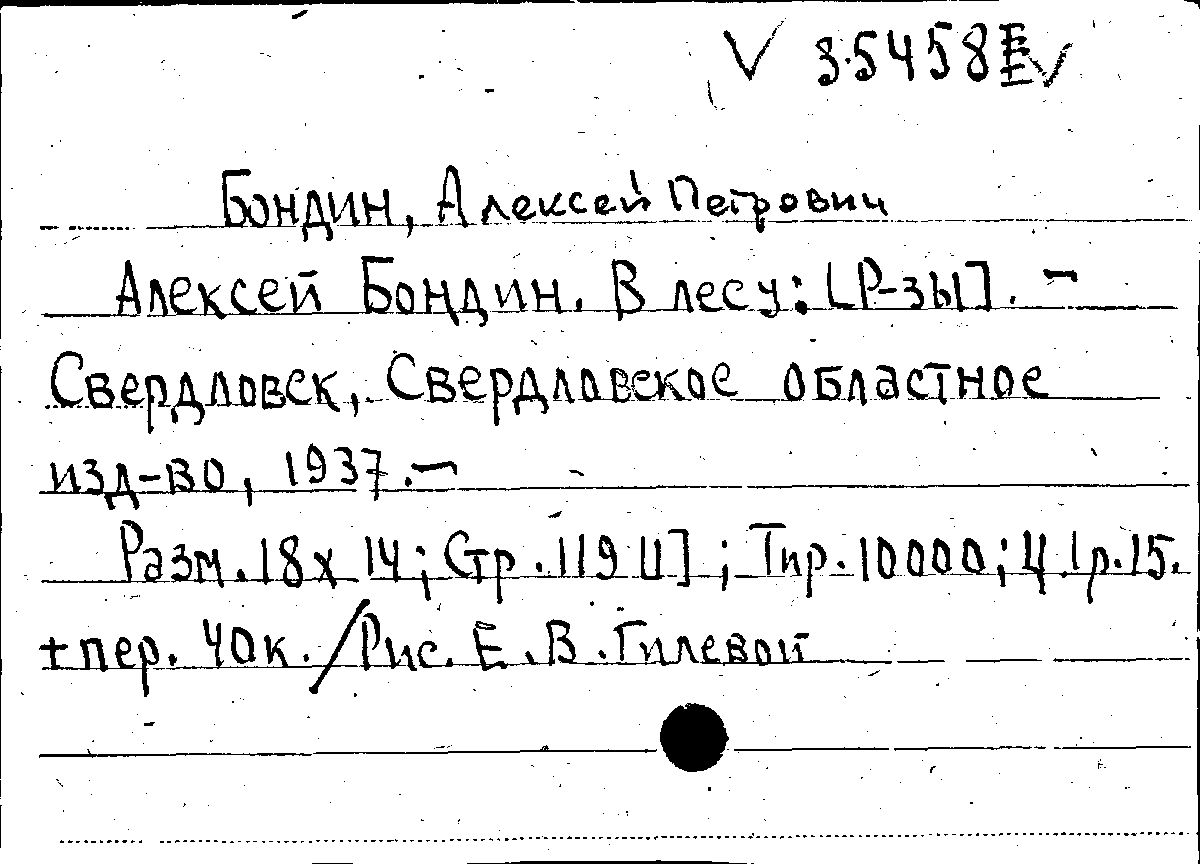 3.5458
Бондин, Алексей Петрович
Алексей Бондин. В лесу: [Р-зы]. –
Свердловск, Свердловское областное
изд-во, 1937. –
Разм. 18 х 14; Стр. 119 [1]; Тир. 10000; Ц. 1р. 15.
+ пер. 40к. / Рис. Е. В. Гилевой